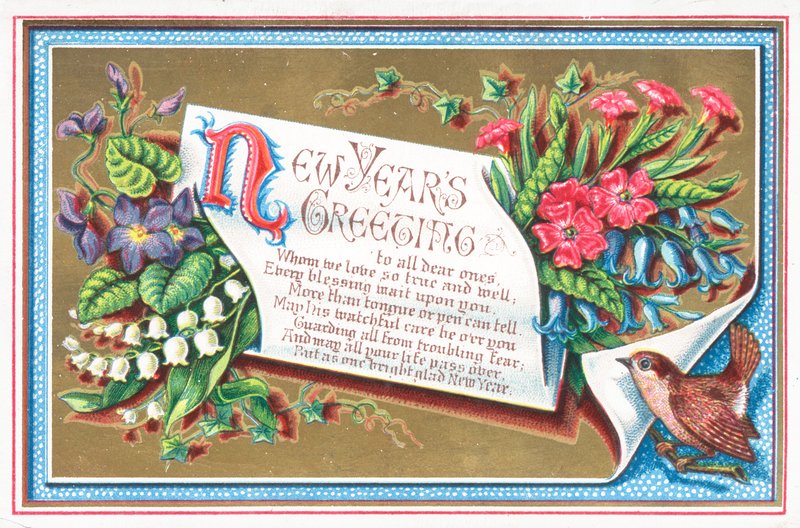 New Year's
Greeting
to all dear ones,
Whom we love so true and well;
Every blessing wait upon you,
More than tongue or pen can tell.
May his watchful care be o'er you
Guarding all from troubling fear;
And may all your life pass over,
But as one bright glad New Year.